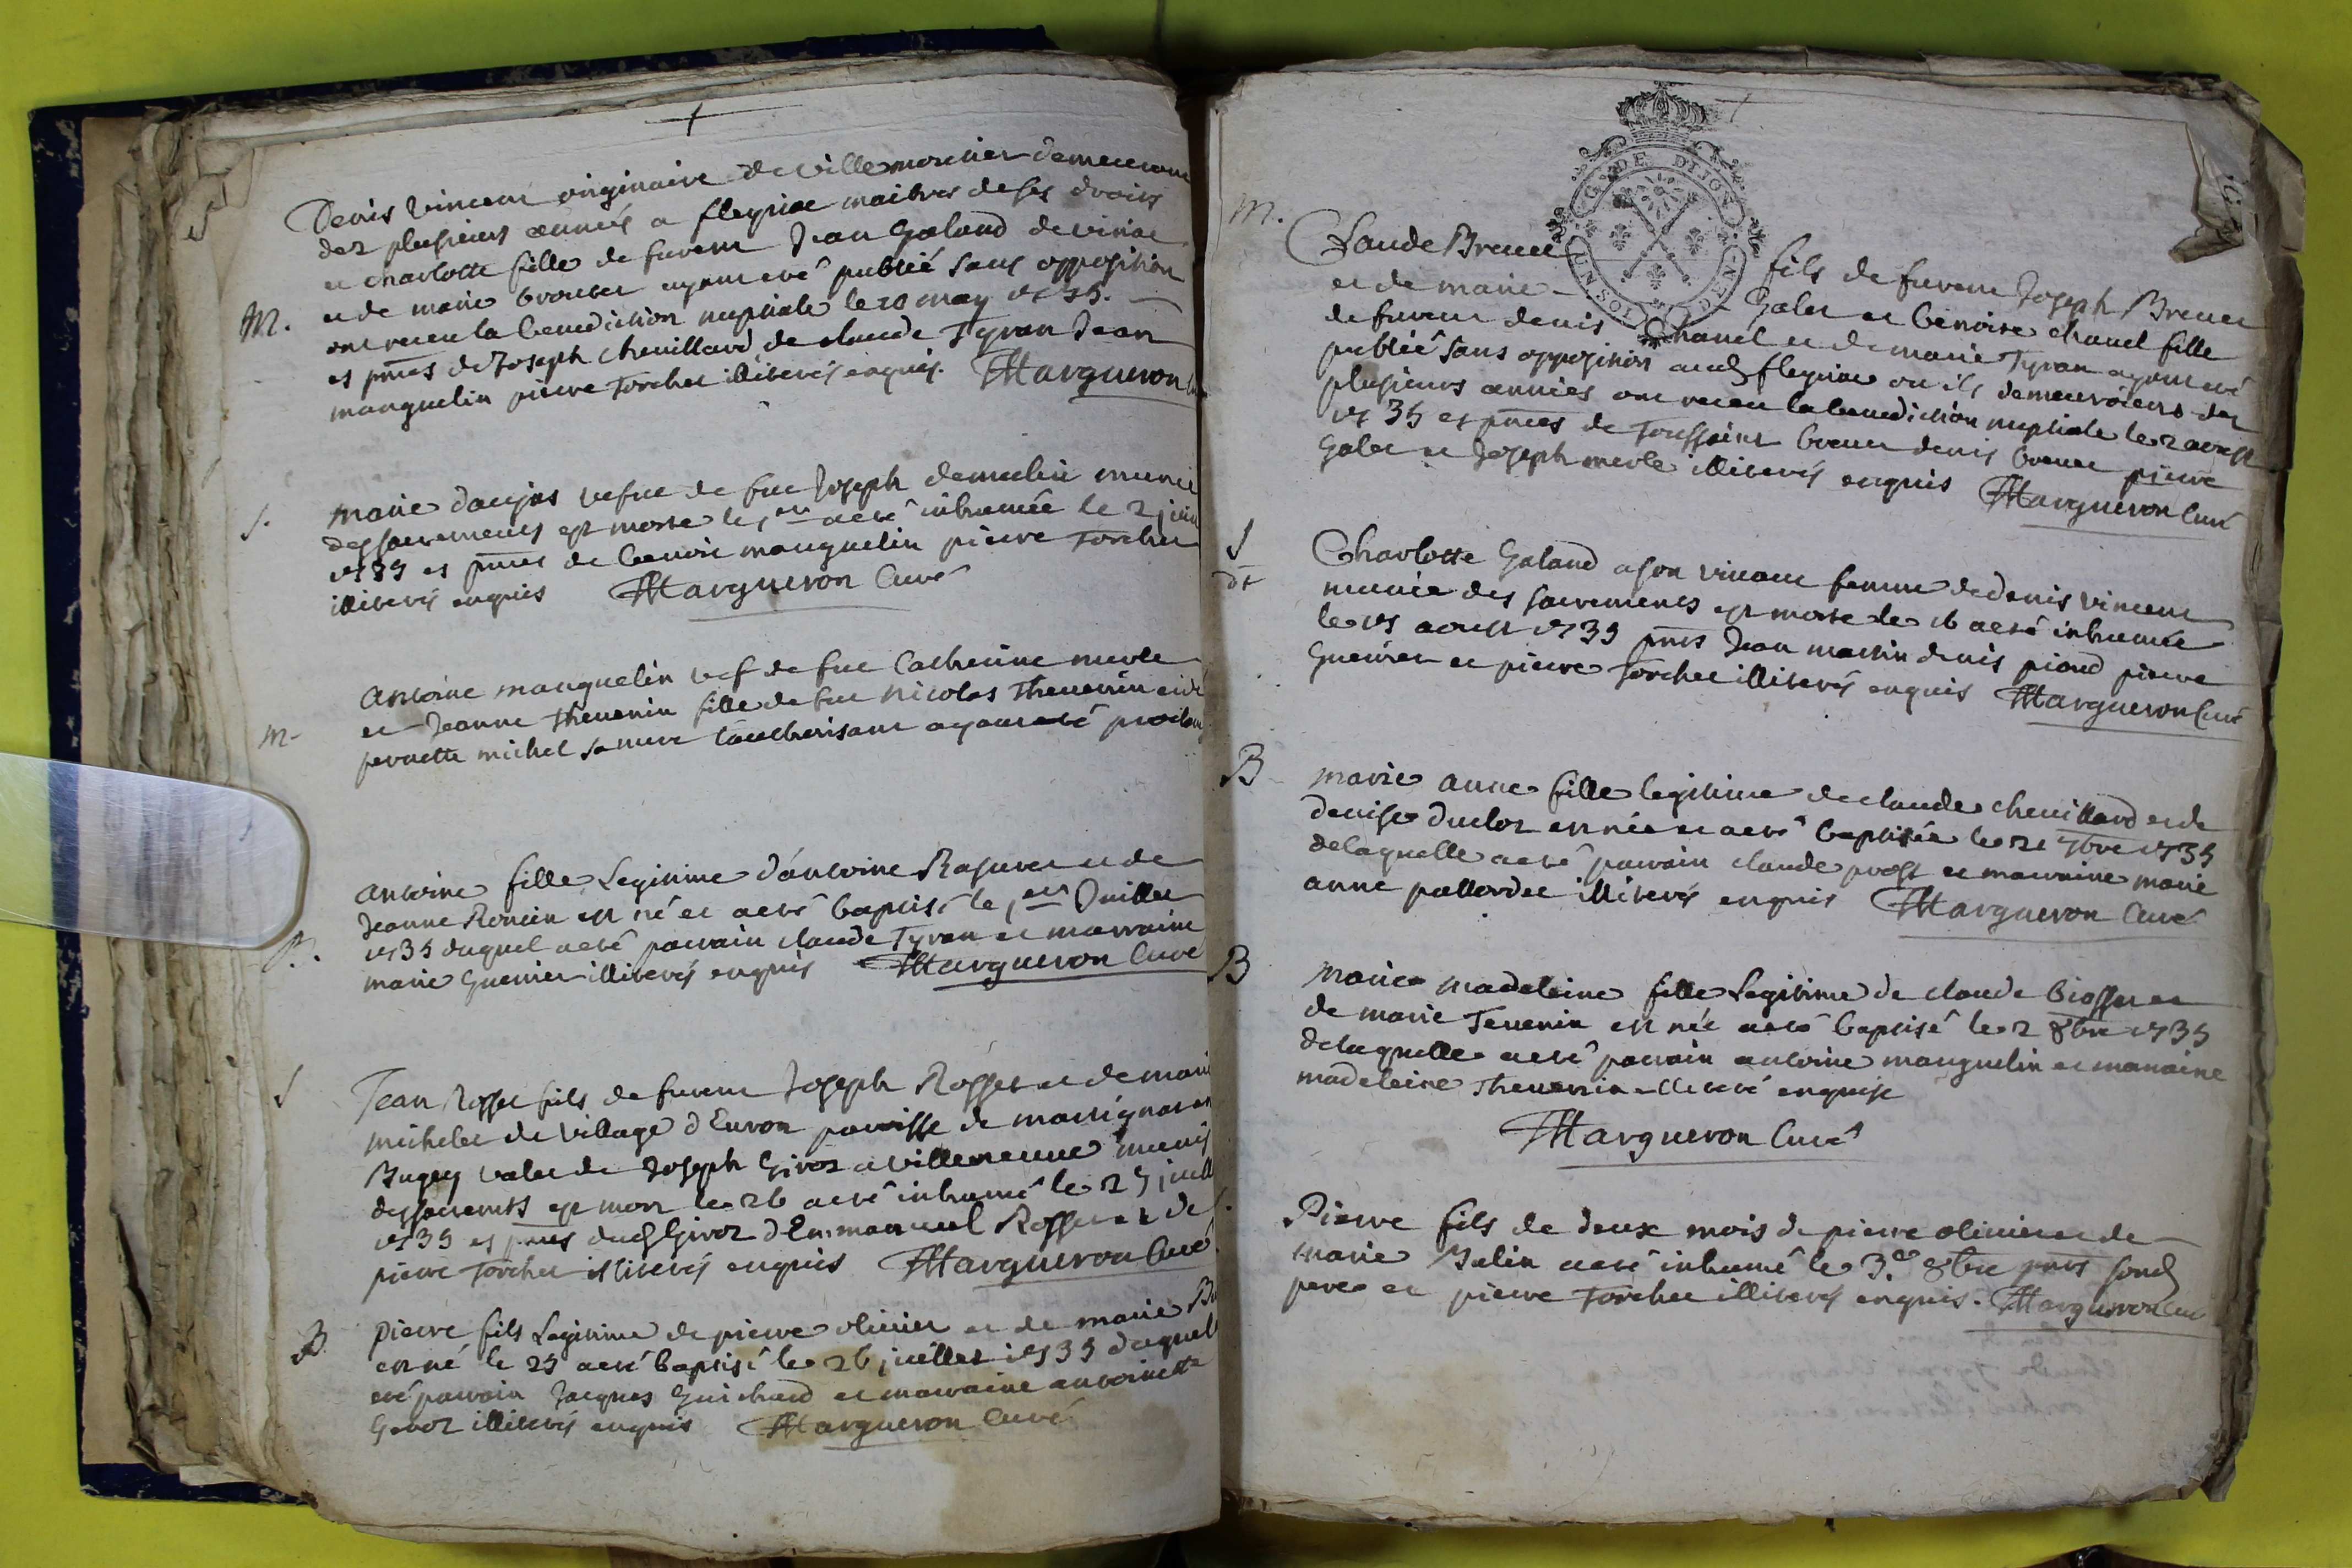 Denis Vincent originaire de Villemorine demeurant
dez plusieurs années a fleyriac maitres de ses droits
et charlotte fille de fuvent Jean Galand de
et de marie ayant eté publié sans opposition
M. ont receu la benediction nuptiale le 10 may 1735.
es pnces de Joseph cheuillard de claude Tyran Jean
manguelin pierre Torchet illiterés enquis. Margueron
S. marie daujas vefue de feu Joseph demulin munie
des sacremens est morte le 1er a eté inhumée le 2 juin
1735 es pnces de benoit manguelin pierre Torchet
illiterés enquis Margueron Curé
antoine manguelin vef de fue Catherine merle
m. et Jeanne Thevenin fille de feu nicolas Thevenin et de
pernette michel sa mere l'authorisant ayant eté
antoine fille Legitime d'antoine Rasurel et de
Jeanne est né et a eté baptisé le 1er Juillet
B. 1735 duquel a eté parrain claude Tyran et marraine
marie Guenier illiterés enquis Margueron Curé
S Jean Rosset fils de fuvent Joseph Rosset et de marie
michelet de village d'Euron parroisse de
Bugey valet de Joseph Givoz a villeneuue munis
des sacremts est mort le 26 a eté inhumé le 27 juill
1735 es pnces dud Givoz d'Emmanuel Rosset et de
pierre Torchet illiterés enquis Margueron Curé
B pierre fils Legitime de pierre oliuier et de marie
est né le 25 a eté baptisé le 26 juillet 1735 duquel
eté parrain Jacques Guichard et marraine antoinette
illiterés enquis Margueron Curé
G. DE DIJON
M. Claude Breuet fils de fuvent Joseph Breuet
et de marie Galet et benoite chanel fille
de fuvent denis Chanel et de marie Tyran ayant eté
publié sans opposition aud fleyriac ou ils demeuroient dez
plusieurs années ont receu la benediction nuptiale le 2 aoust
1735 es pnces de Toussaint breuet denis breuet pierre
Galet et Joseph merle illiterés enquis Margueron Curé
S Charlotte Galand a son vivant femme de denis Vincent
munie des sacremens est morte le 16 a eté inhumée
le 17 aoust 1735 pnts Jean martin denis piond pierre
Guenier et pierre Torchet illiterés enquis Margueron Curé
B marie anne fille legitime de claude cheuillard et de
denise duclos est née et a eté baptisée le 21 7bre 1735
de laquelle a eté parrain claude prost et marraine marie
anne pallordet illiterés enquis Margueron Curé
B marie madeleine fille Legitime de claude biosset et
de marie Teuenin est née a eté baptisé le 2 8bre 1735
de laquelle a eté parrain antoine manguelin et marraine
madeleine Theuenin illiteré enquise
Margueron Curé
Pierre fils de deux mois de pierre oliuier et de
marie a eté inhumé le 3.e 8bre pnts sond
pere et pierre Torchet illiterés enquis. Margueron Curé